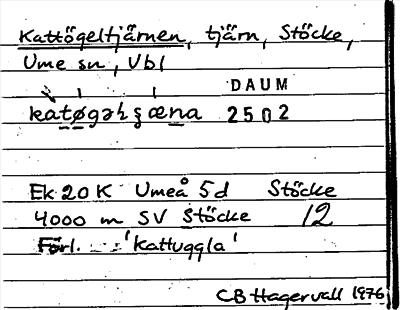 Kattögeltjärnen, tjärn, Stöcke,
Ume sn, Vbl
DAUM
2502
Ek 20 K Umeå 5d Stöcke
4000 m SV Stöcke 12
Förl. 'Kattuggla'
CB Hagervall 1976